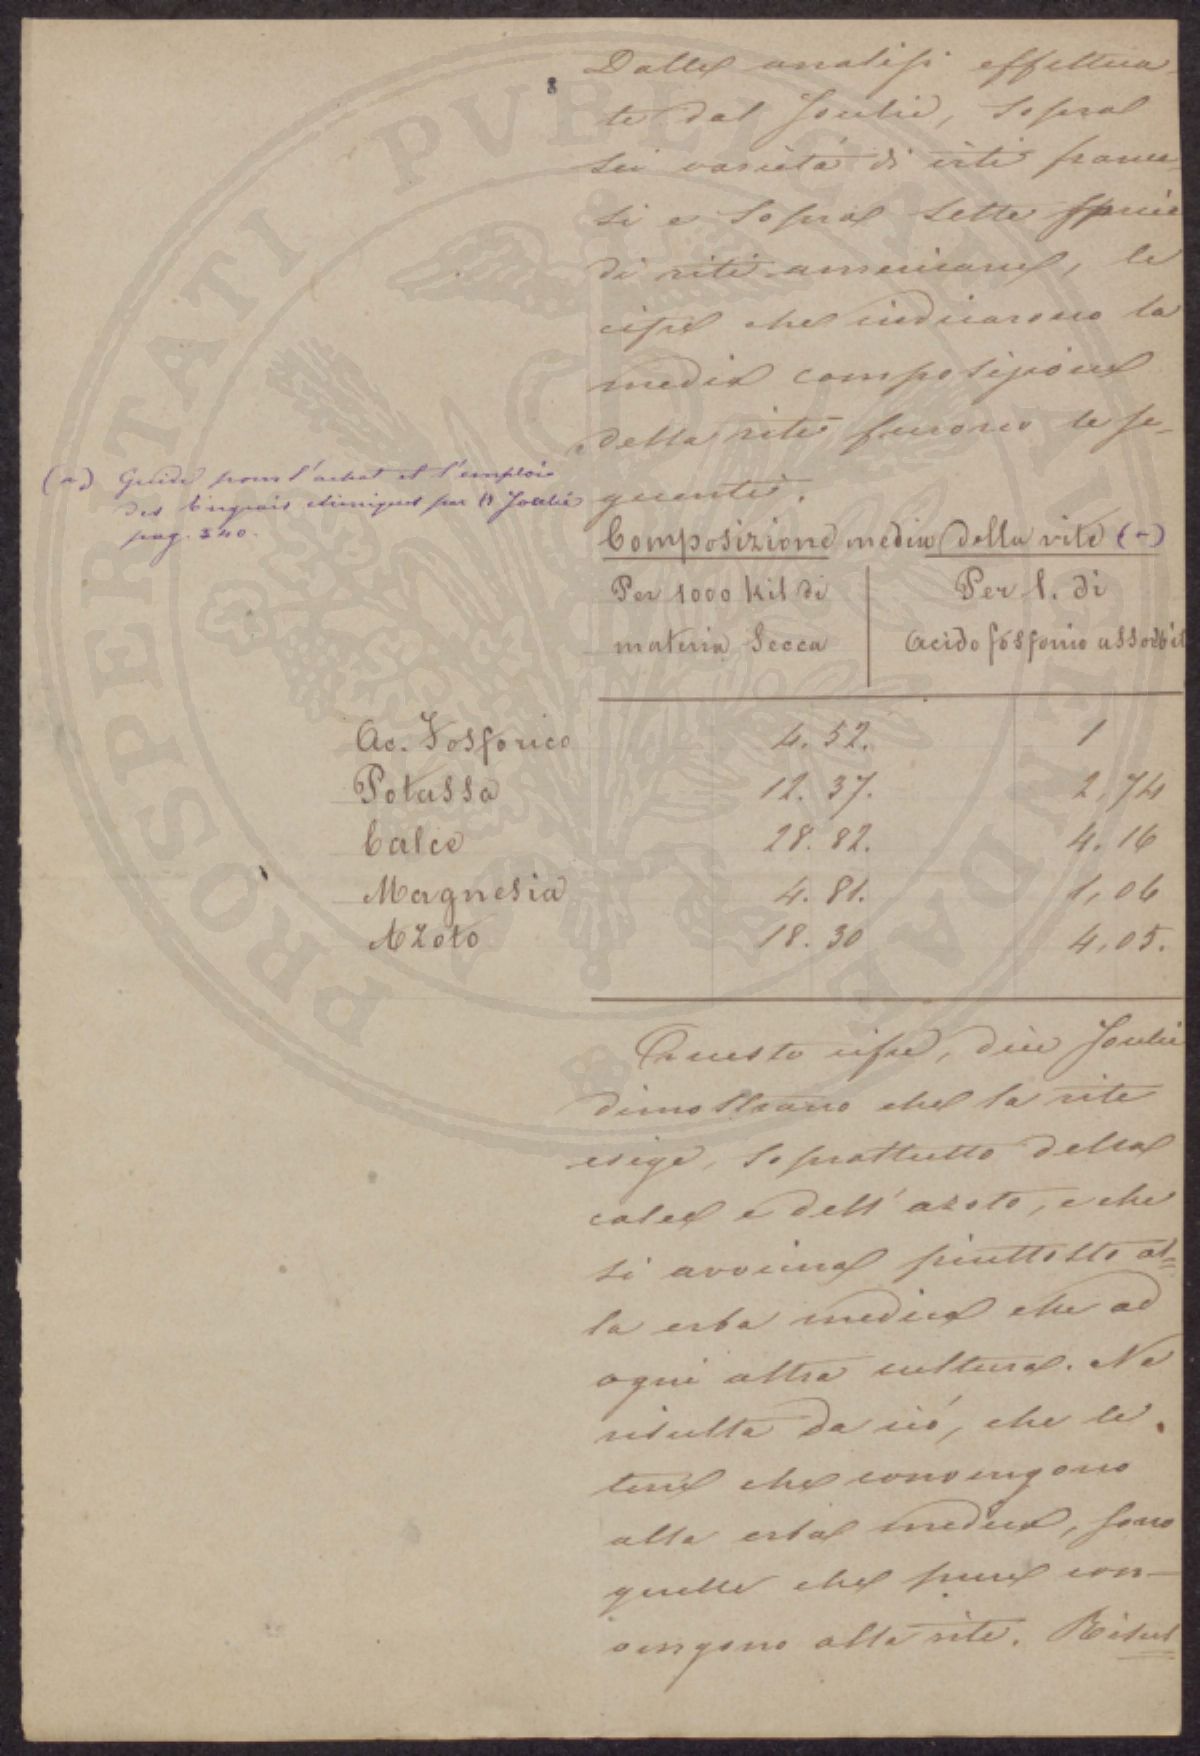 8
Dalle analisi effettua-
te dal Joulie, sopra
sei varietà di viti france-
si e sopra sette specie
di viti americane, le
cifre che indicarono la
media composizione
della vite furono le se-
guenti.
(a) Guide pour l'achat et l'emploie
des Engrais chimiques par H Joulie
pag. 340.
Composizione media della vite (a)
Per 1000 Kil di
materia secca
Per 1. di
acido fosforico assorbit
Ac. Fosforico 4.52. 1
Potassa 12.37. 2,74
Calce 28.82. 4.16
Magnesia 4.81. 1,06
Azoto 18.30 4,05.
Queste cifre, dice Joulie
dimostrano che la vite
esige, soprattutto della
calce e dell'azoto, e che
si avvicina piuttosto al=
la erba medica che ad
ogni altra cultura. Ne
risulta da ciò, che le
terre che convengono
alla erba medica, sono
quelle che pure con-
vengono alla vite. Risul
PROSPERITATI PVBLICAE AVGENDAE